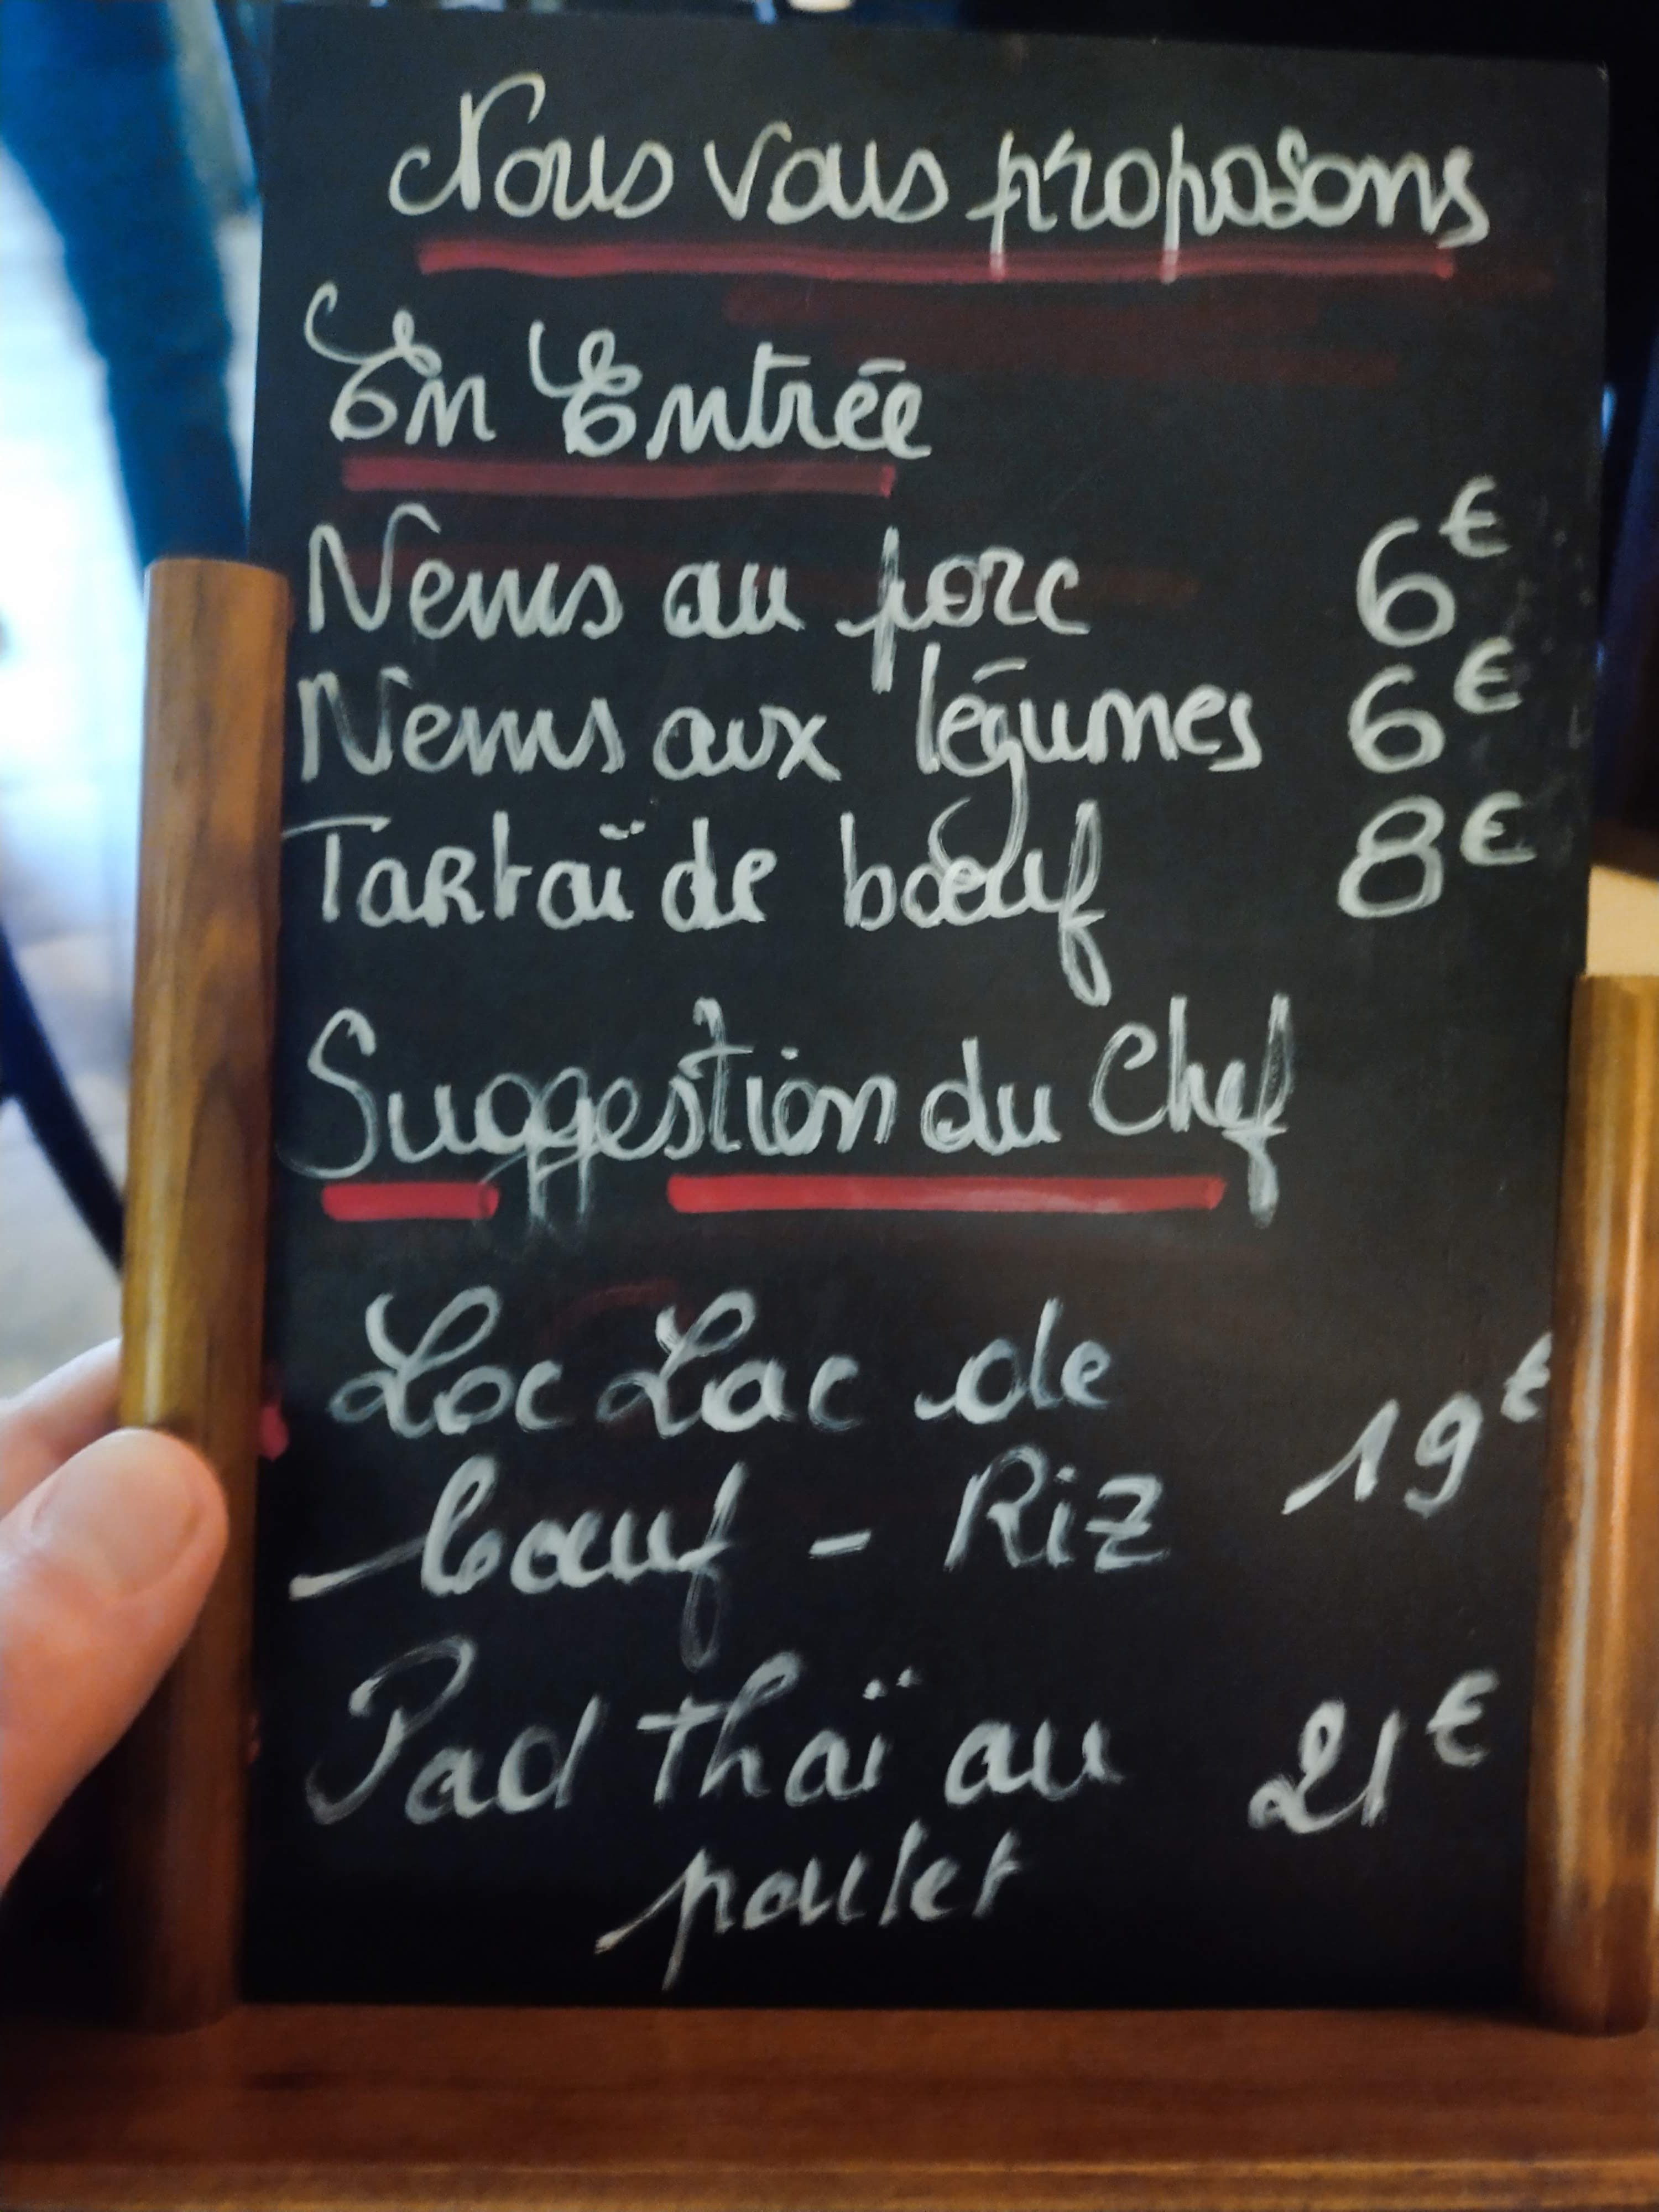 Nous vous proposons
En Entrée
Nems au porc 6€
Nems aux légumes 6€
Tartaï de bœuf 8€
Suggestion du Chef
Loc Lac de
bœuf - Riz 19€
Pad thaï au 21€
poulet